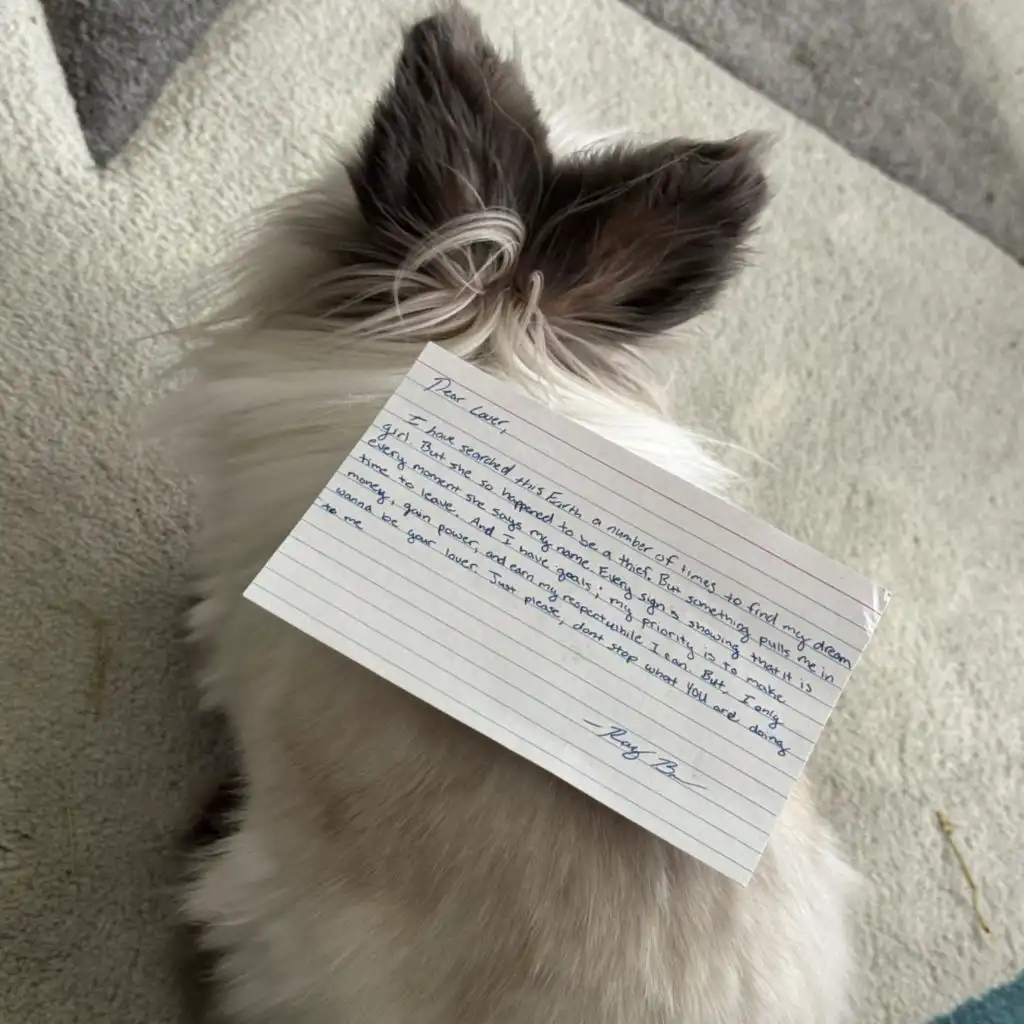 Dear Lover,
I have searched this Earth a number of times to find my dream
girl. But she so happened to be a thief. But something pulls me in
every moment she says my name. Every sign is showing that it is
time to leave. And I have goals; my priority is to make
money, gain power, and earn my respect while I can. But I only
wanna be your lover. Just please, dont stop what YOU are doing
to me
-Ray B